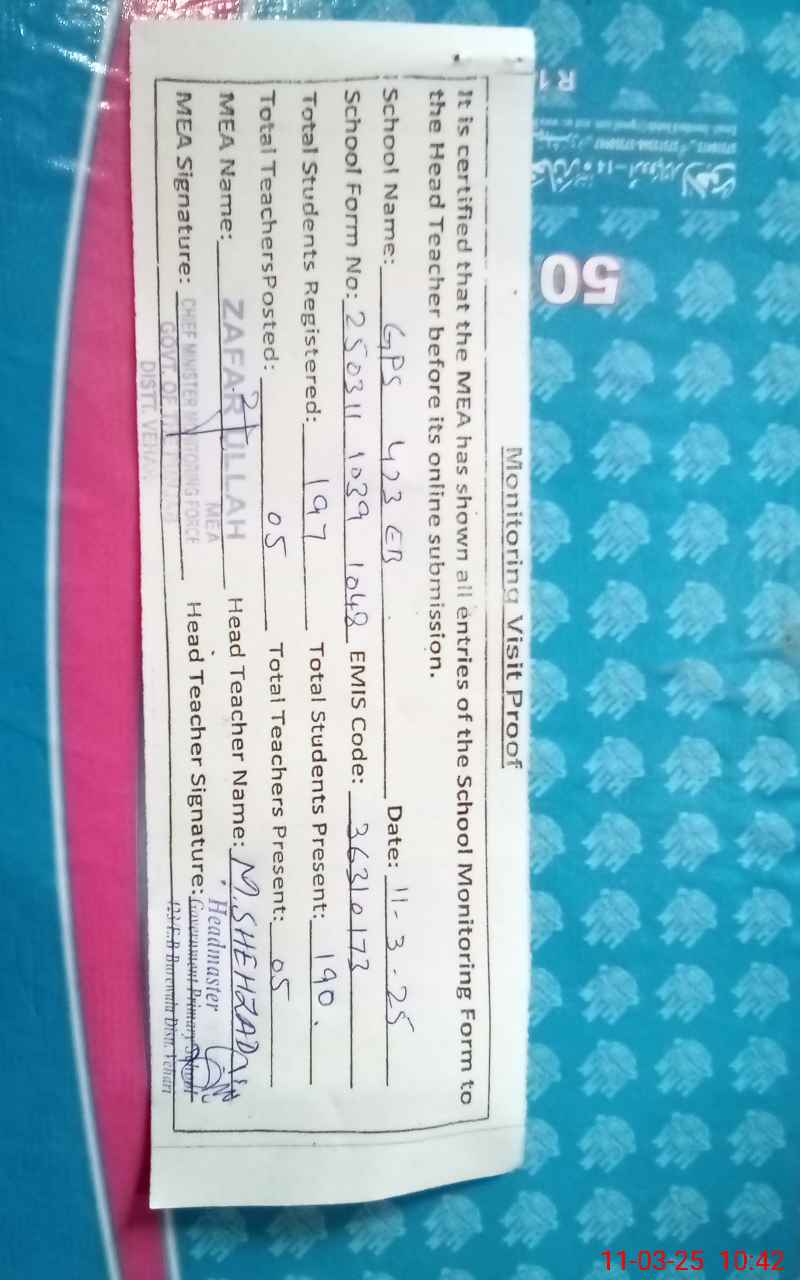 Monitoring Visit Proof
It is certified that the MEA has shown all entries of the School Monitoring Form to
the Head Teacher before its online submission.
School Name: GPS 423 EB Date: 11-3-25
School Form No: 250311 1039 1048 EMIS Code: 36310173
Total Students Registered: 197 Total Students Present: 190.
Total TeachersPosted: 05 Total Teachers Present: 05
MEA Name: ZAFAR ULLAH Head Teacher Name: M.SHEHZAD
MEA
Headmaster
MEA Signature: CHIEF MINISTER MONITORING FORCE Head Teacher Signature: Government Primary School
GOVT. OF
DISTT. VEHARI
423 E.B Burewala Distt. Vehari
50
R 1
11-03-25 10:42